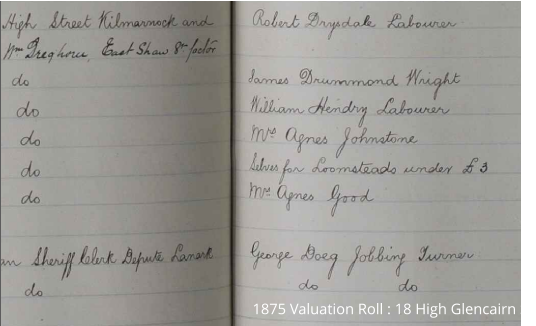 High Street Kilmarnock and
Wm Dreghorn, East Shaw St factor
do
do
do
do
do
an Sheriff Clerk Depute Lanark
do
Robert Drysdale Labourer
James Drummond Wright
William Hendry Labourer
Mrs Agnes Johnstone
Selves for Loomsteads under £3
Mrs Agnes Good
George Doeg Jobbing Turner
do do
1875 Valuation Roll : 18 High Glencairn